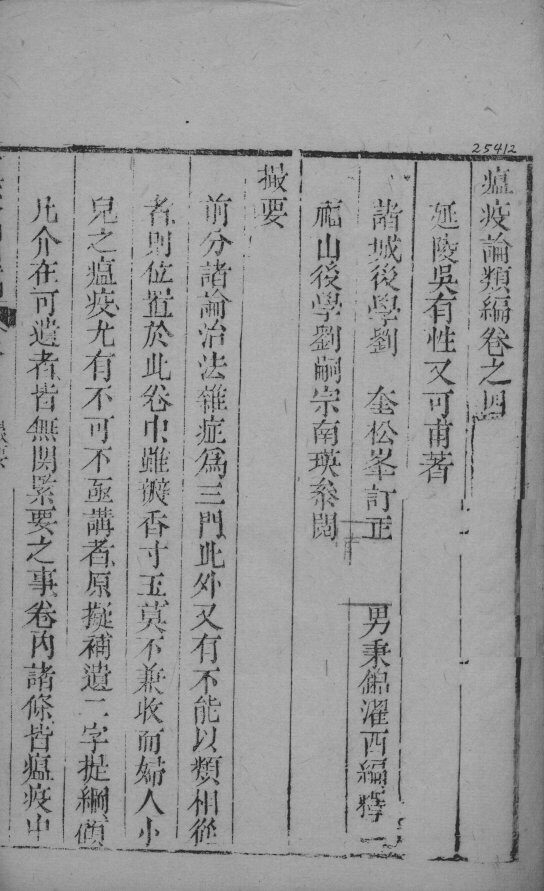 25412
瘟疫論類編卷之四
延陵吳有性又可甫著
諸城後學劉 奎松峯訂正 男秉錦濯西編釋
福山後學劉嗣宗南瑛叅閱
撮要
前分諸論治法雜症爲三門此外又有不能以類相從
者則位置於此卷中雖瓣香寸玉莫不兼收而婦人小
兒之瘟疫尤有不可不亟講者原擬補遺二字提綱傎
凡介在可遺者皆無関緊要之事卷內諸條皆瘟疫中